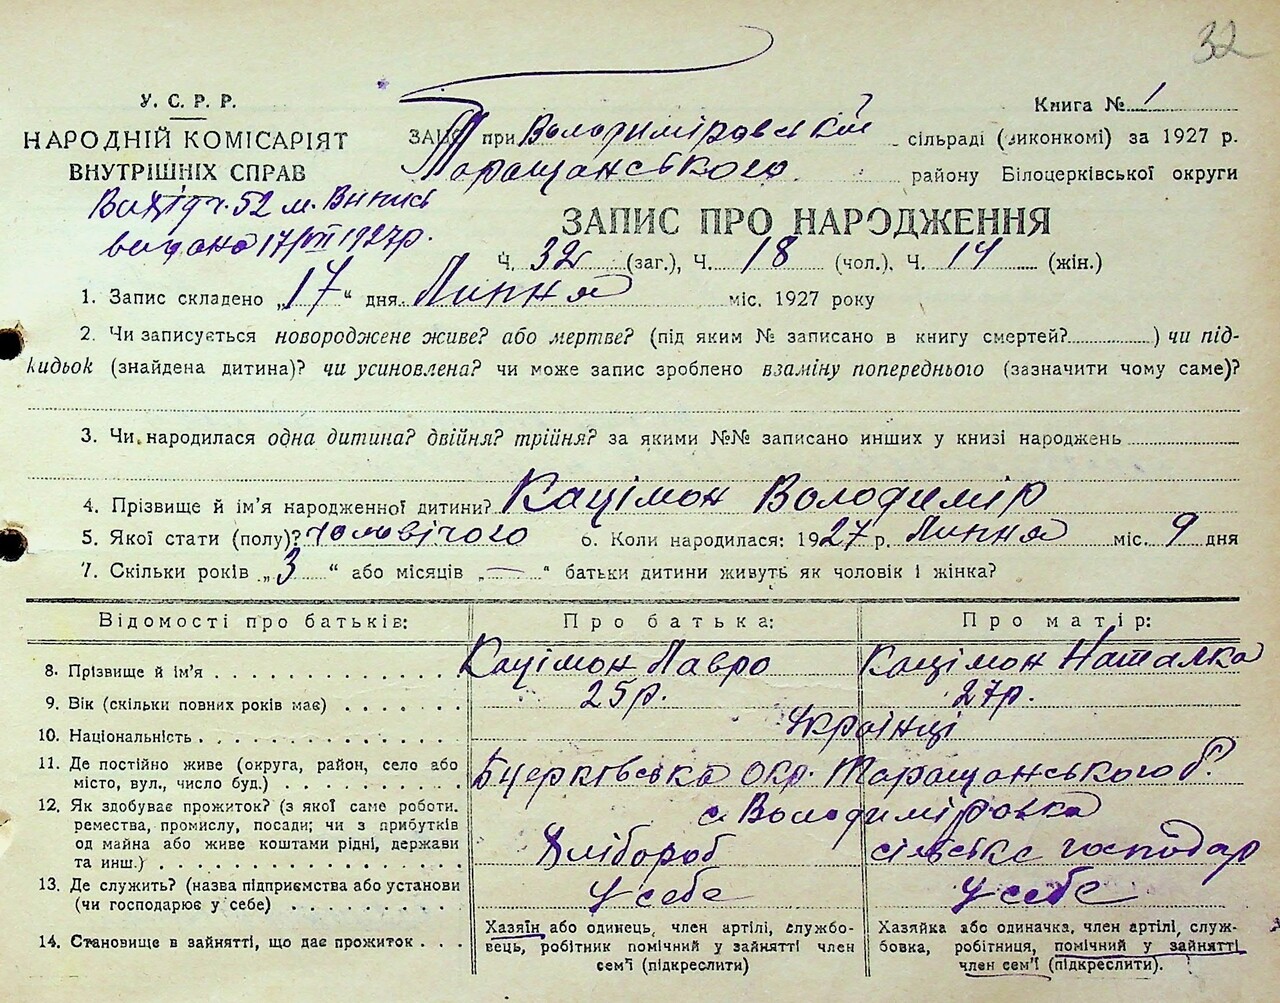 32
У. С. Р. Р.
НАРОДНІЙ КОМІСАРІЯТ
ВНУТРІШНІХ СПРАВ
видано 17/VII 1927р.
Книга № 1
ЗАЦС при Володиміровській сільраді (виконкомі) за 1927 р.
Таращанського району Білоцерківської округи
ЗАПИС ПРО НАРОДЖЕННЯ
Ч. 32 (заг.), Ч. 18 (чол.), Ч. 14 (жін.)
1. Запис складено „17“ дня Липня міс. 1927 року
2. Чи записується новороджене живе? або мертве? (під яким № записано в книгу смертей?) чи під-
кидьок (знайдена дитина)? чи усиновлена? чи може запис зроблено взаміну попереднього (зазначити чому саме)?
3. Чи народилася одна дитина? двійня? трійня? за якими №№ записано инших у книзі народжень
4. Прізвище й ім'я народженної дитини? Кацімон Володимір
5. Якої стати (полу)? чоловічого 6. Коли народилася: 1927 р. Липня міс. 9 дня
7. Скільки років „3“ або місяців „—“ батьки дитини живуть як чоловік і жінка?
Відомості про батьків: Про батька: Про матір:
8. Прізвище й ім'я Кацімон Лавро Кацімон Наталка
9. Вік (скільки повних років має) 25р. 27р.
10. Національність Українці
11. Де постійно живе (округа, район, село або
місто, вул., число буд.) Бцерківська окр. Таращанського р.
с. Володиміровка
12. Як здобуває прожиток? (з якої саме роботи.
ремества, промислу, посади; чи з прибутків
од майна або живе коштами рідні, держави
та инш.) Хлібороб сільське господар
13. Де служить? (назва підприємства або установи
(чи господарює у себе) У себе У себе
14. Становище в зайнятті, що дає прожиток
Хазяїн або одинець, член артілі, службо-
вець, робітник помічний у зайнятті член
сем'ї (підкреслити)
Хазяйка або одиначка, член артілі, служ-
бовка, робітниця, помічний у зайнятті
член сем'ї (підкреслити).